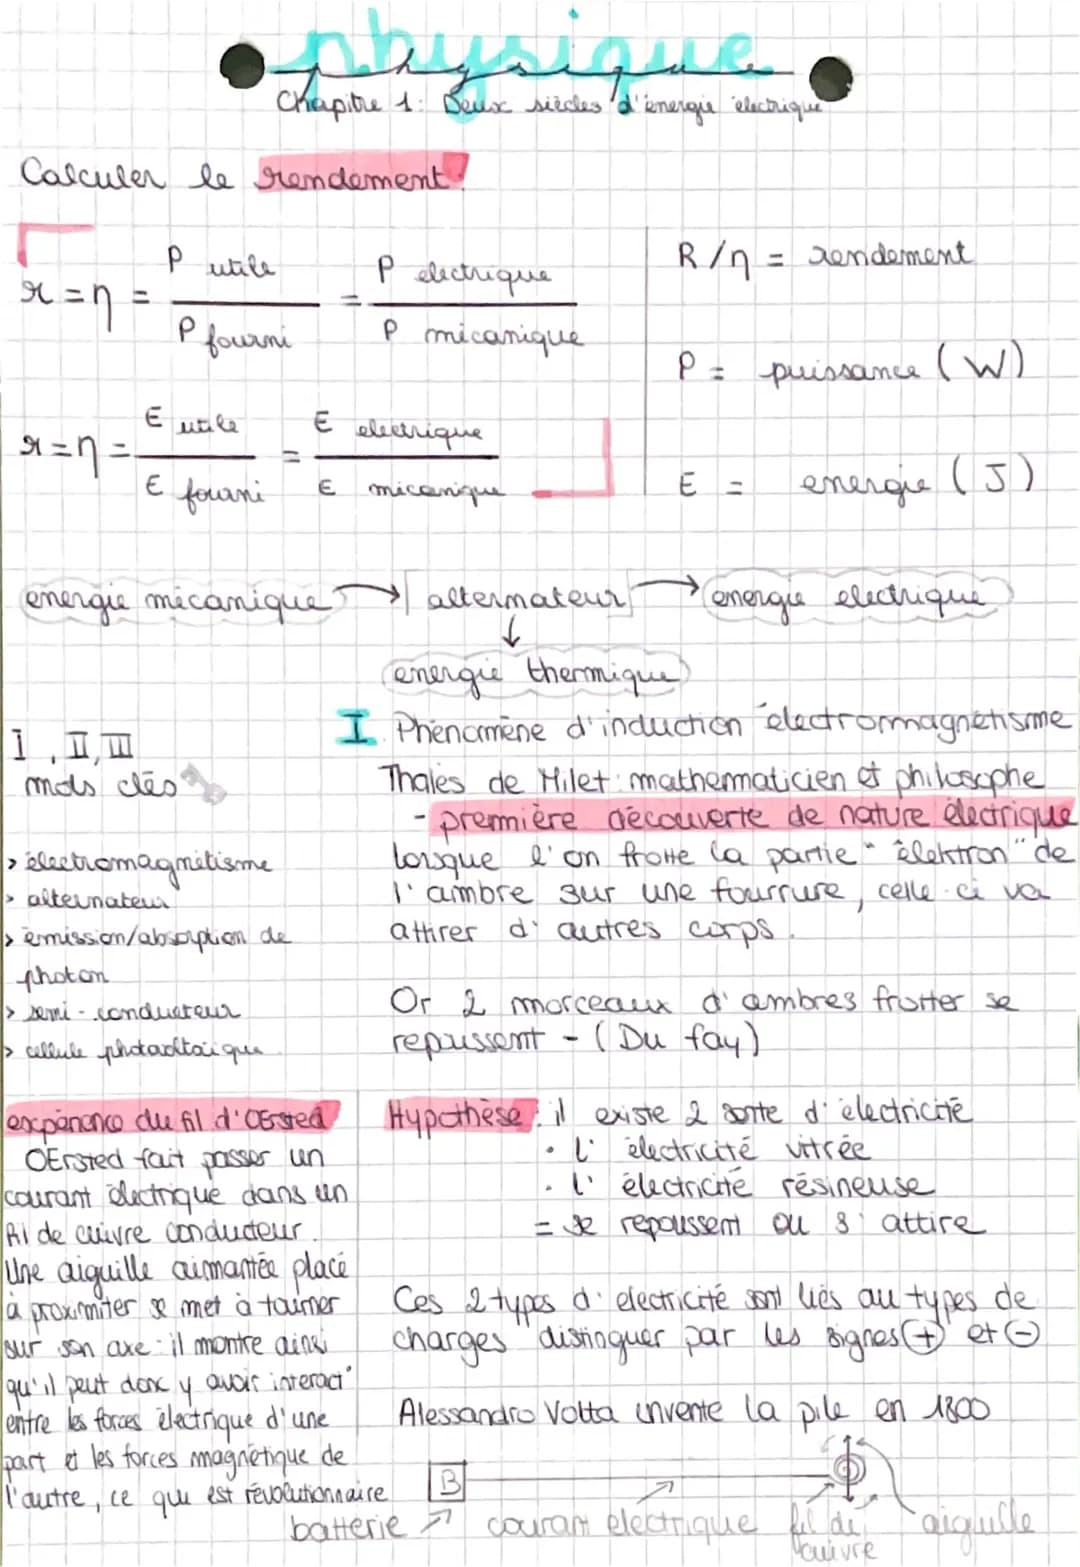 physique
Chapitre 1: Deux siècles d'énergie électrique
Calculer le rendement:
r = η = P utile / P fourni = P electrique / P micanique
R/η = rendement
P = puissance (W)
r = η = E utile / E fourni = E electrique / E micanique
E = energie (J)
energie mécanique → alternateur → energie electrique
↓
energie thermique
I, II, III
mots clés
> électromagnétisme
> alternateur
> émission/absorption de
photon
> semi-conducteur
> cellule photovoltaïque
I Phénomène d'induction électromagnétisme
Thalès de Milet: mathématicien et philosophe
- première découverte de nature électrique
lorsque l'on frotte la partie "élektron" de
l'ambre sur une fourrure, celle-ci va
attirer d'autres corps.
Or 2 morceaux d'ambres frotter se
repoussent - (Du fay)
expérience du fil d'OErsted
OErsted fait passer un
courant électrique dans un
fil de cuivre conducteur.
Une aiguille aimantée placé
à proximiter se met à tourner
sur son axe: il montre ainsi
qu'il peut donc y avoir interact°
entre les forces électrique d'une
part et les forces magnétique de
l'autre, ce qui est révolutionnaire
Hypothèse: il existe 2 sorte d'électricité
• l' électricité vitrée
• l' électricité résineuse
= se repoussent ou s'attire
Ces 2 types d'electricité sont liés au types de
charges distinguer par les signes (+) et (-)
Alessandro Volta invente la pile en 1800
B
batterie courant electrique fil de cuivre aiguille